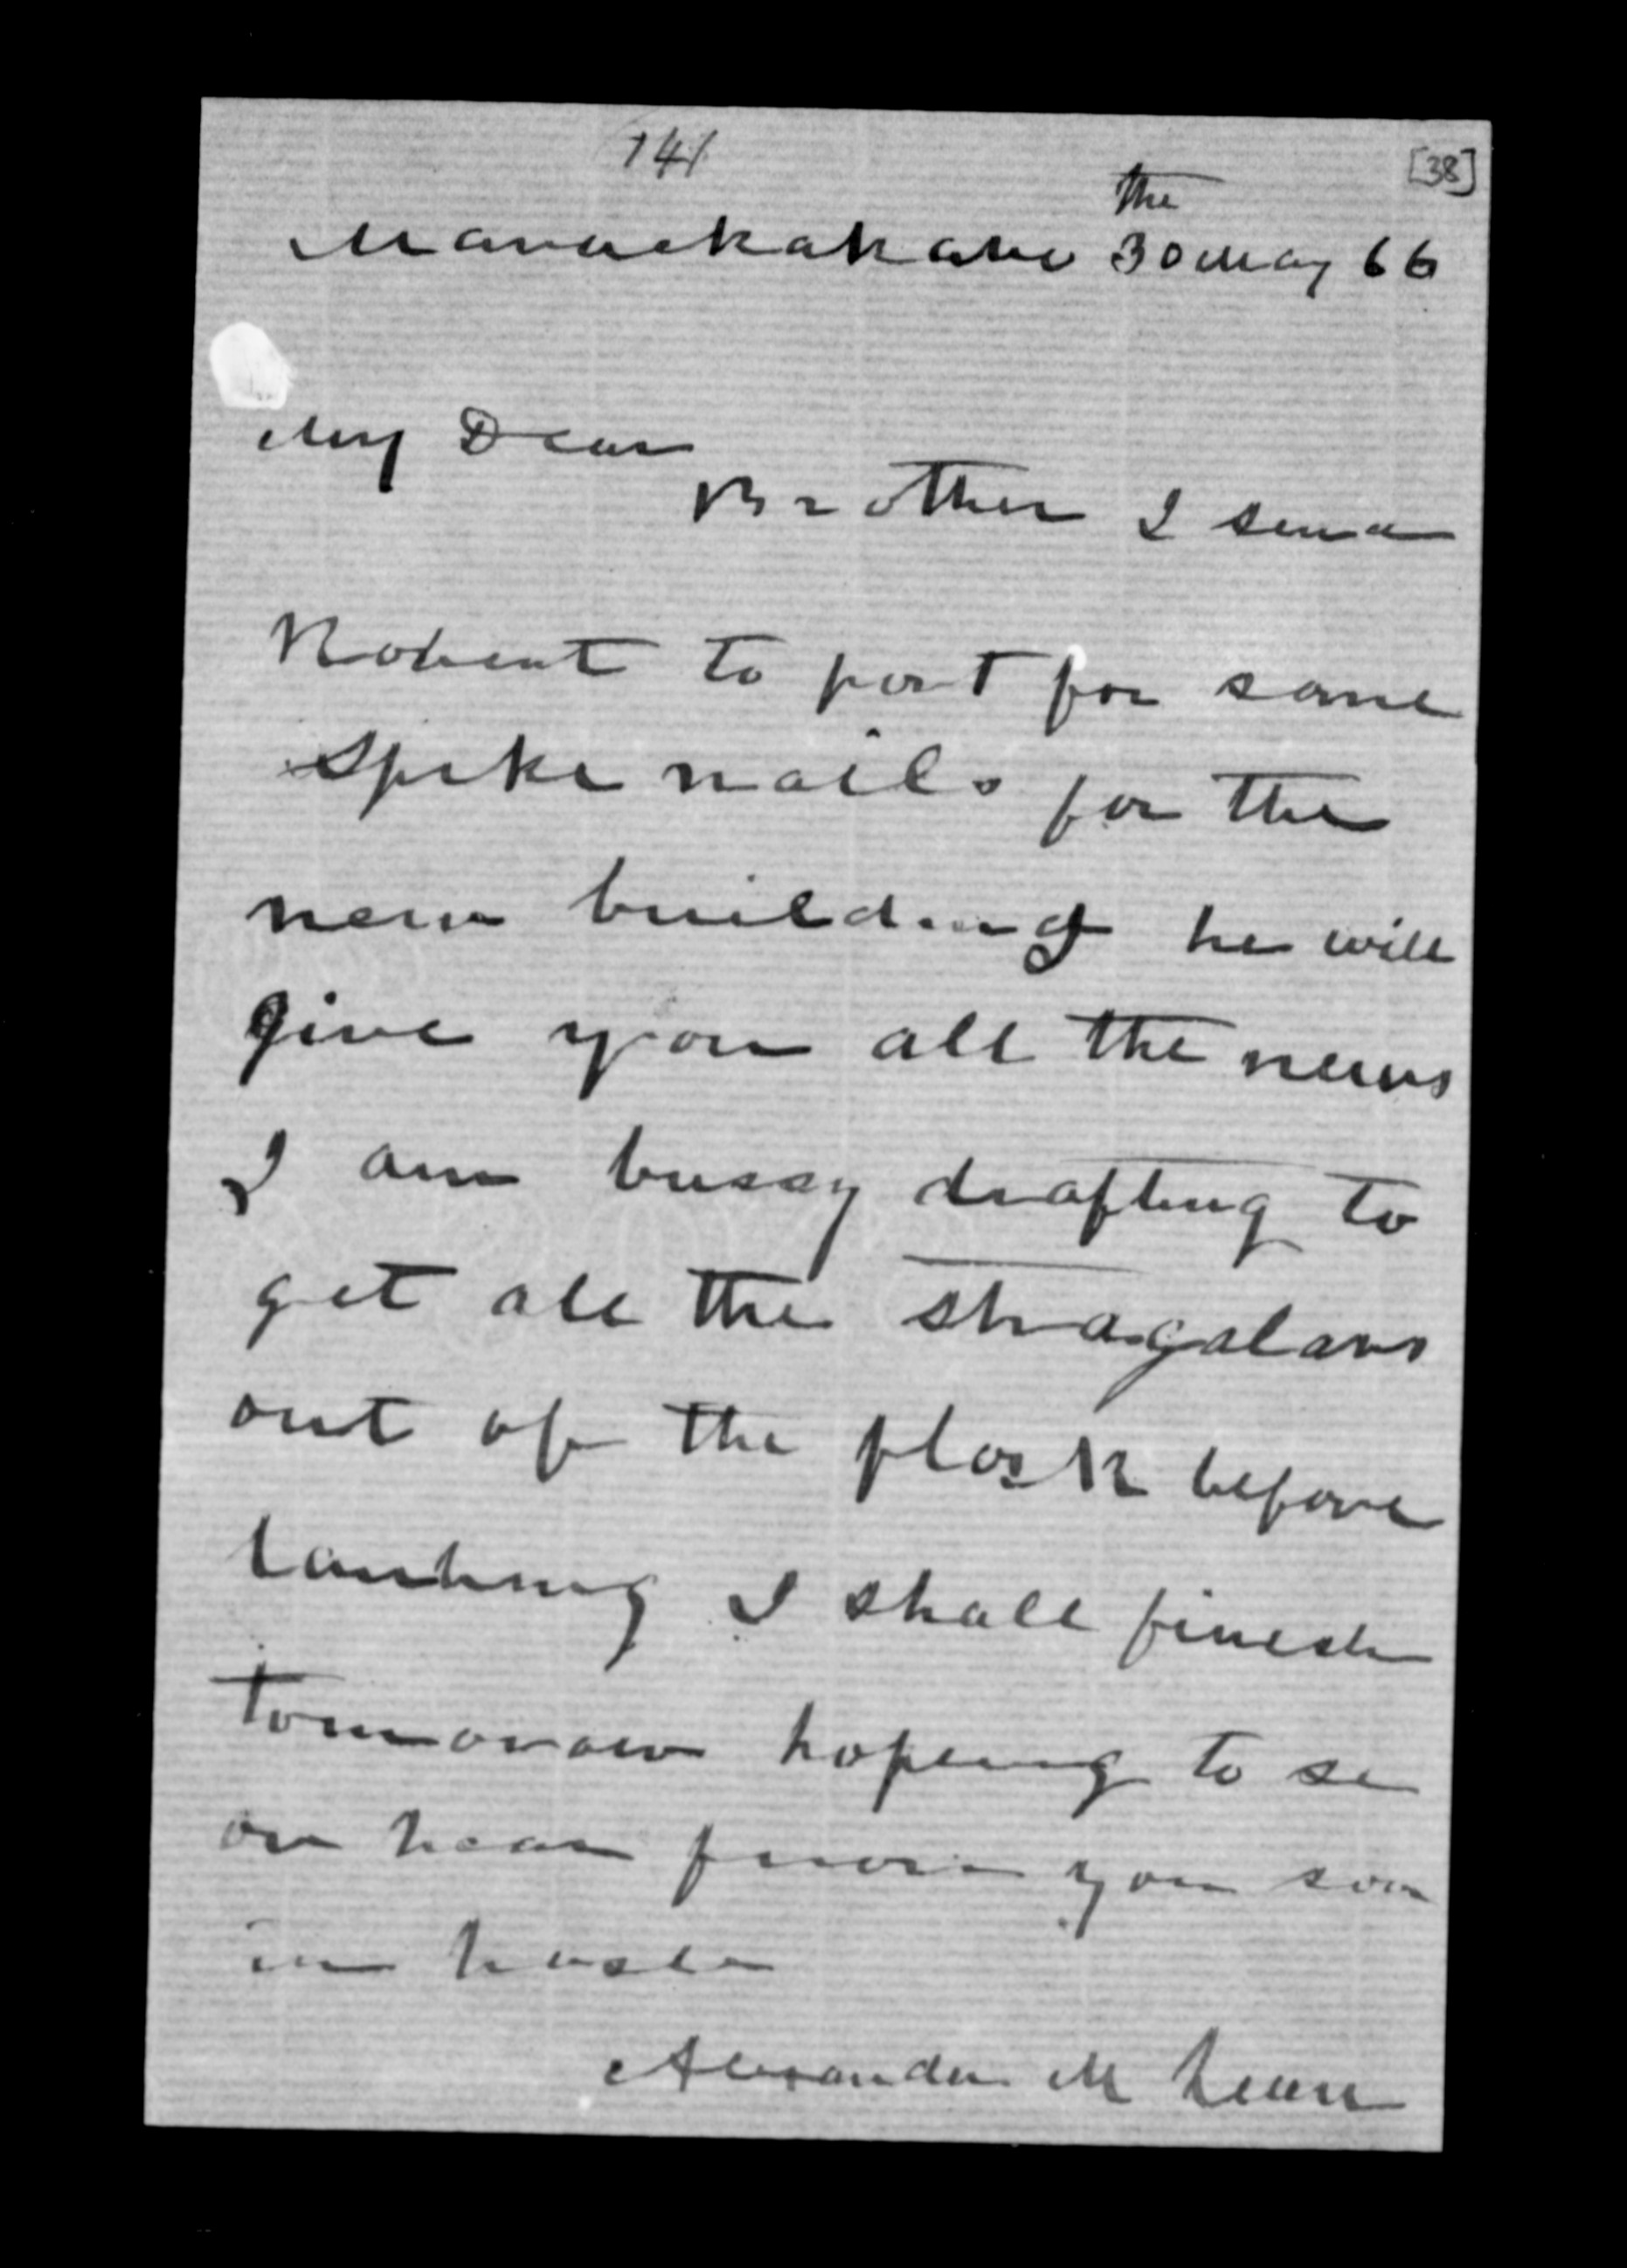 141
[38]
the
Maraekakaho 30 May 66
My Dear
Brother I send
Robert to port for some
Spike nails for the
new building he will
give you all the news
I am bussy drafting to
get all the stragalars
out of the flock before
lambing I shall finesh
tomorow hopeing to se
or hear from you soon
in haste
Alexander McLean